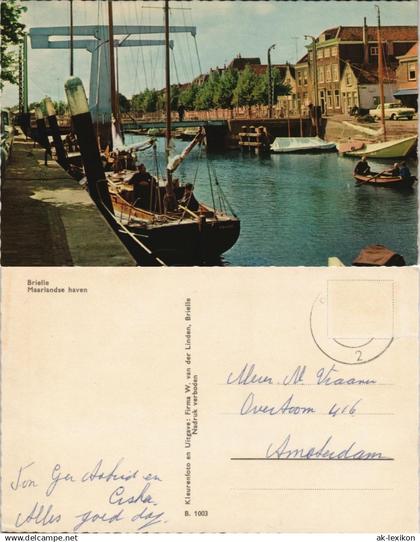 Brielle
Maarlandse haven
Kleurenfoto en Uitgave: Firma W. van der Linden, Brielle
Nadruk verboden
2
Mevr. M. Vraam
Overtoom 416
Amsterdam
Ton Ger Astrid en
Ciska.
Alles goed dag.
B. 1003
© www.ak-lexikon.de
ak-lexikon